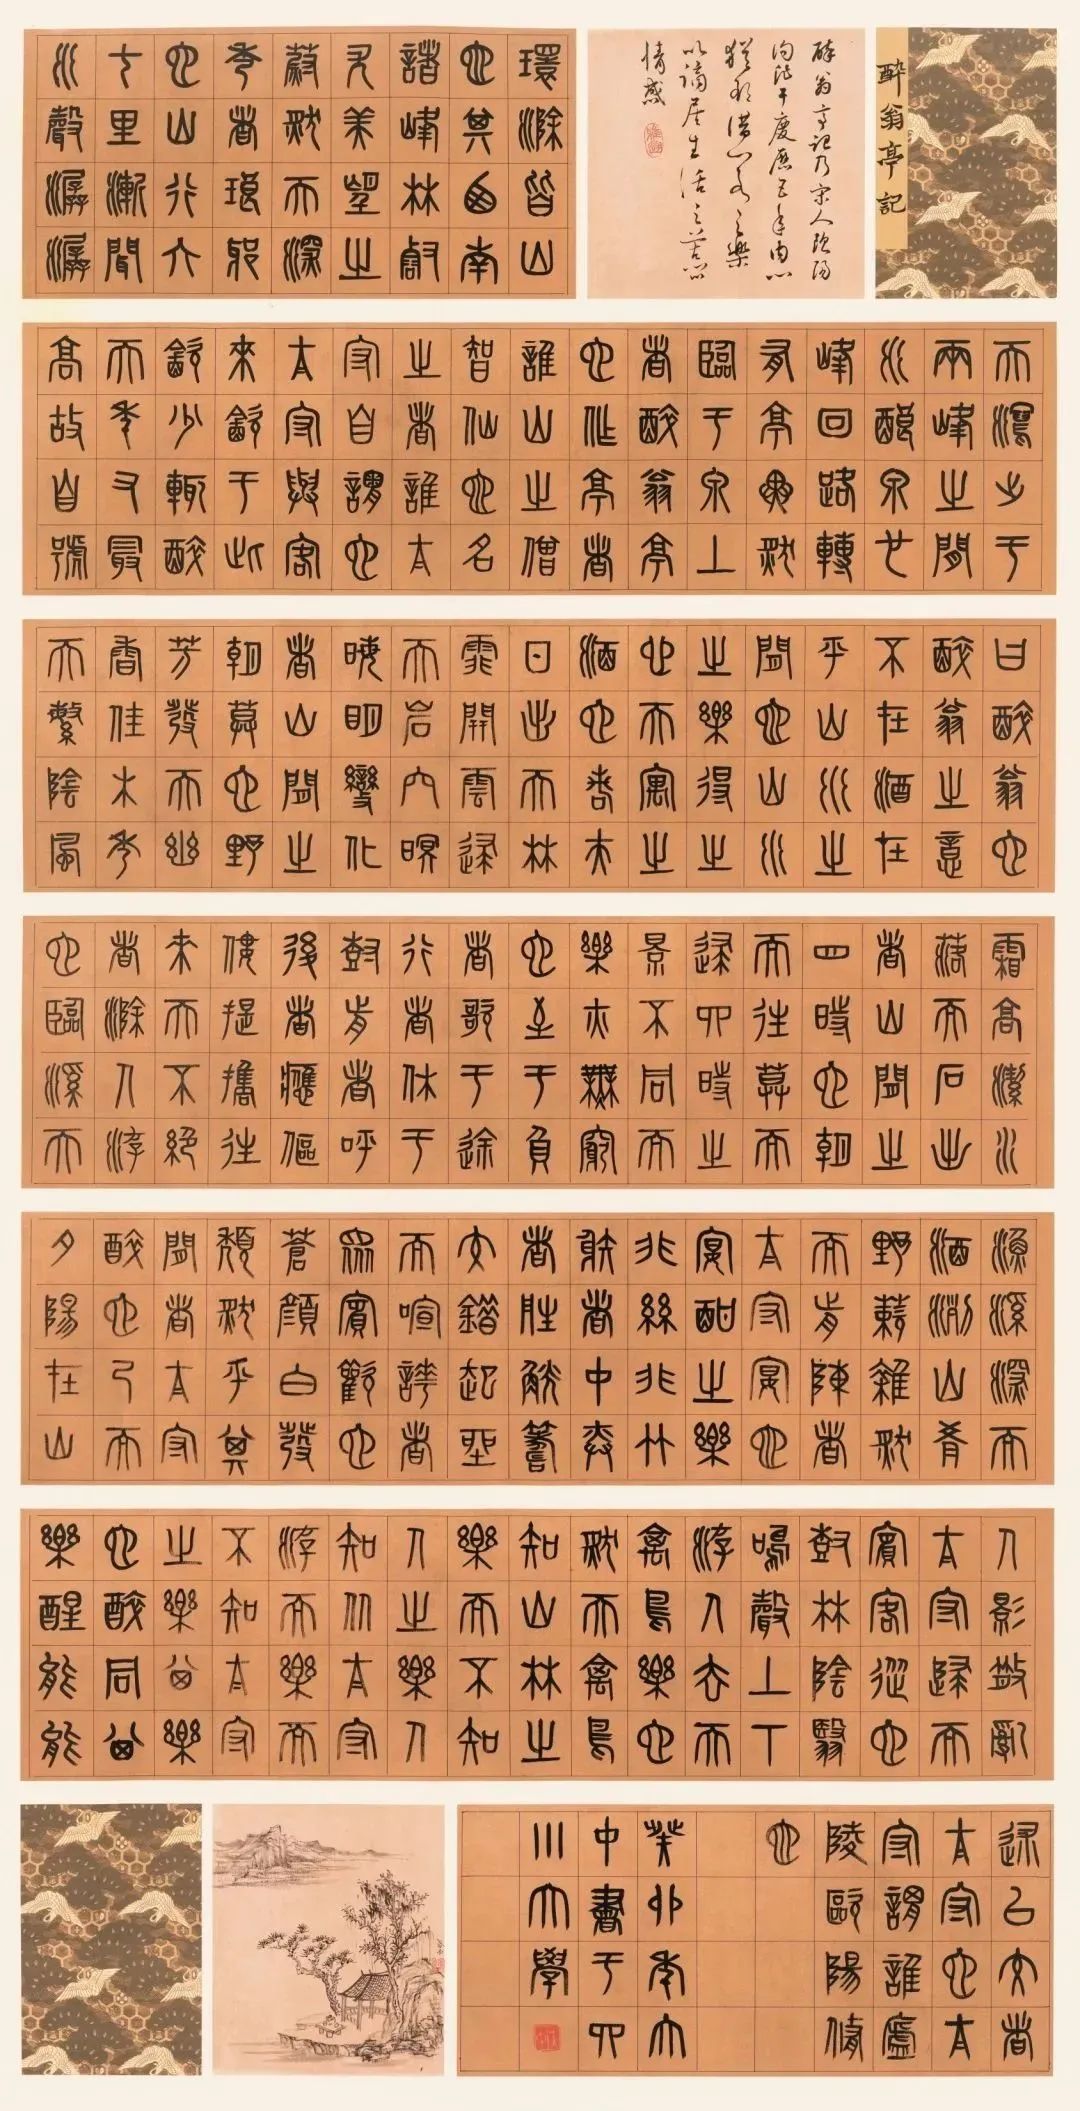 酔翁亭記
醉翁亭記乃宋人欧陽
以謫居生活之苦心
情感
環滁皆山
也其西南
諸峰林壑
尤美望之
蔚然而深
秀者琅琊
也山行六
七里漸聞
水聲潺潺
而瀉出于
兩峰之間
水釀泉也
峰回路轉
有亭翼然
臨于泉上
者醉翁亭
也作亭者
誰山之僧
智仙也名
之者誰太
守自謂也
太守與客
來飲于此
飲少輒醉
而年又最
高故自號
曰醉翁也
醉翁之意
不在酒在
乎山水之
間也山水
之樂得之
心而寓之
酒也若夫
日出而林
霏開雲歸
而岩穴暝
晦明變化
者山間之
朝暮也野
芳發而幽
香佳木秀
而繁陰風
霜高潔水
落而石出
者山間之
四時也朝
而往暮而
歸四時之
景不同而
樂亦無窮
也至于負
者歌于途
行者休于
樹前者呼
後者應傴
僂提攜往
來而不絕
者滁人游
也臨溪而
漁溪深而
酒洌山肴
野蔌雜然
而前陳者
太守宴也
宴酣之樂
非絲非竹
射者中弈
者勝觥籌
交錯起坐
而喧嘩者
眾賓歡也
蒼顏白髮
頹然乎其
間者太守
醉也已而
夕陽在山
人影散亂
太守歸而
賓客從也
樹林陰翳
鳴聲上下
游人去而
禽鳥樂也
然而禽鳥
知山林之
樂而不知
人之樂人
知從太守
游而樂而
不知太守
之樂其樂
也醉同其
樂醒能能
述以文者
太守也太
守謂誰廬
陵歐陽修
也
癸卯年大
中書于四
川大學